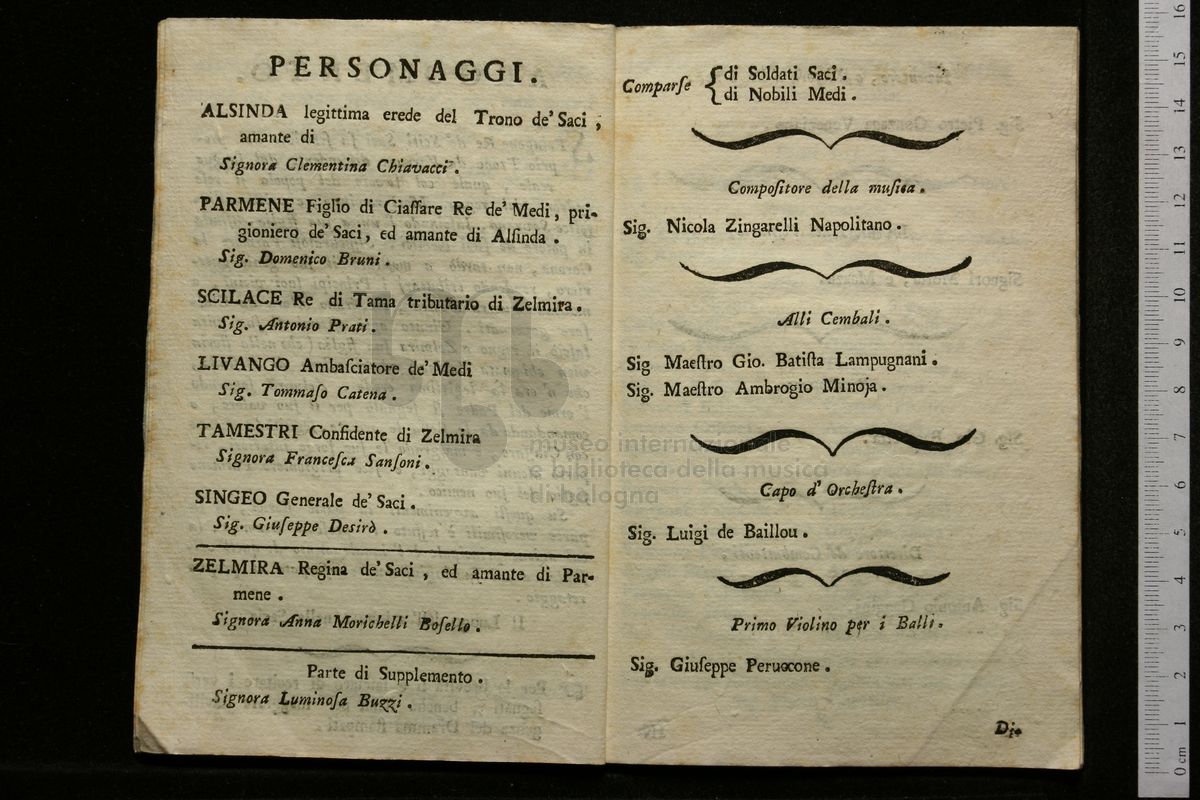 PERSONAGGI.
ALSINDA legittima erede del Trono de' Saci,
amante di
Signora Clementina Chiavacci.
PARMENE Figlio di Ciaſſare Re de' Medi, pri-
gioniero de' Saci, ed amante di Alſinda.
Sig. Domenico Bruni.
SCILACE Re di Tama tributario di Zelmira.
Sig. Antonio Prati.
LIVANGO Ambaſciatore de' Medi
Sig. Tommaſo Catena.
TAMESTRI Confidente di Zelmira
Signora Franceſca Sanſoni.
SINGEO Generale de' Saci.
Sig. Giuſeppe Desirò.
ZELMIRA Regina de' Saci, ed amante di Par-
mene.
Signora Anna Morichelli Boſello.
Parte di Supplemento.
Signora Luminoſa Buzzi.
Comparſe { di Soldati Saci.
di Nobili Medi.
Compoſitore della muſica.
Sig. Nicola Zingarelli Napolitano.
Alli Cembali.
Sig Maeſtro Gio. Batiſta Lampugnani.
Sig. Maeſtro Ambrogio Minoja.
Capo d' Orcheſtra.
Sig. Luigi de Baillou.
Primo Violino per i Balli.
Sig. Giuſeppe Peruccone.
Di-
museo internazionale
e biblioteca della musica
di bologna
0 cm 1 2 3 4 5 6 7 8 9 10 11 12 13 14 15 16